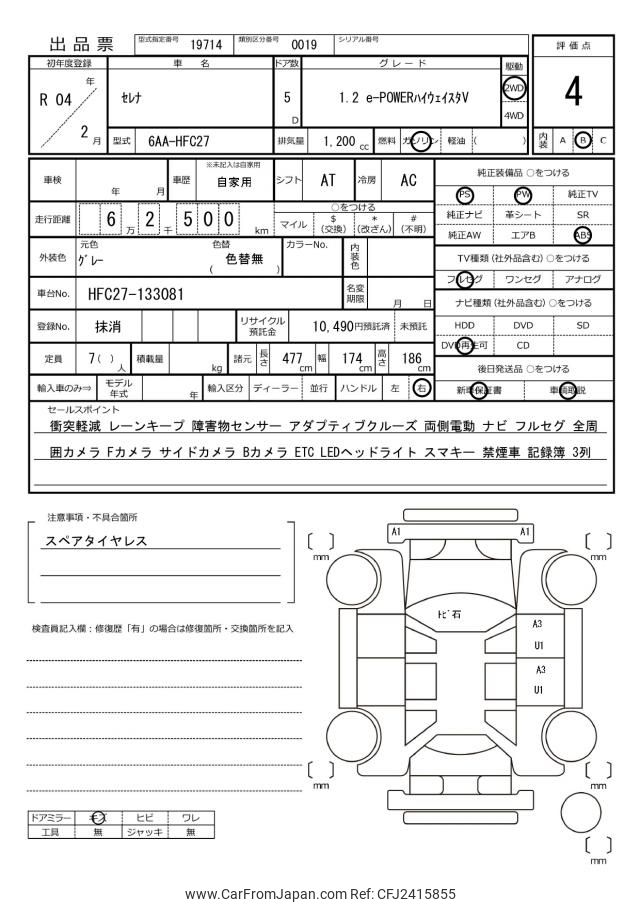 出品票 型式指定番号 19714 類別区分番号 0019 シリアル番号
評価点
4
内装 A B C
初年度登録 車名 ドア数 グレード 駆動
R 04 年 2 月 セレナ 5 D 1.2 e-POWERハイウェイスタV 2WD 4WD
型式 6AA-HFC27 排気量 1,200 cc 燃料 ガソリン 軽油 ( )
車検 年 月 車歴 ※未記入は自家用 自家用 シフト AT 冷房 AC
走行距離 6 万 2 千 5 0 0 km ○をつける
マイル $ (交換) * (改ざん) # (不明)
外装色 元色 グレー 色替 ( 色替無 ) カラーNo. 内装色
車台No. HFC27-133081 名変期限 月 日
登録No. 抹消 リサイクル預託金 10,490円預託済 未預託
定員 7 ( ) 人 積載量 kg 諸元 長さ 477 cm 幅 174 cm 高さ 186 cm
輸入車のみ⇒ モデル年式 年 輸入区分 ディーラー 並行 ハンドル 左 右
純正装備品 ○をつける
PS PW 純正TV
純正ナビ 革シート SR
純正AW エアB ABS
TV種類 (社外品含む) ○をつける
フルセグ ワンセグ アナログ
ナビ種類 (社外品含む) ○をつける
HDD DVD SD
DVD再生可 CD
後日発送品 ○をつける
新車保証書 車輌取説
セールスポイント
衝突軽減 レーンキープ 障害物センサー アダプティブクルーズ 両側電動 ナビ フルセグ 全周
囲カメラ Fカメラ サイドカメラ Bカメラ ETC LEDヘッドライト スマキー 禁煙車 記録簿 3列
注意事項・不具合箇所
スペアタイヤレス
検査員記入欄：修復歴「有」の場合は修復箇所・交換箇所を記入
ドアミラー キズ ヒビ ワレ
工具 無 ジャッキ 無
A1 A1
mm mm
トビ石
A3
U1
A3
U1
mm mm
mm
www.CarFromJapan.com Ref: CFJ2415855